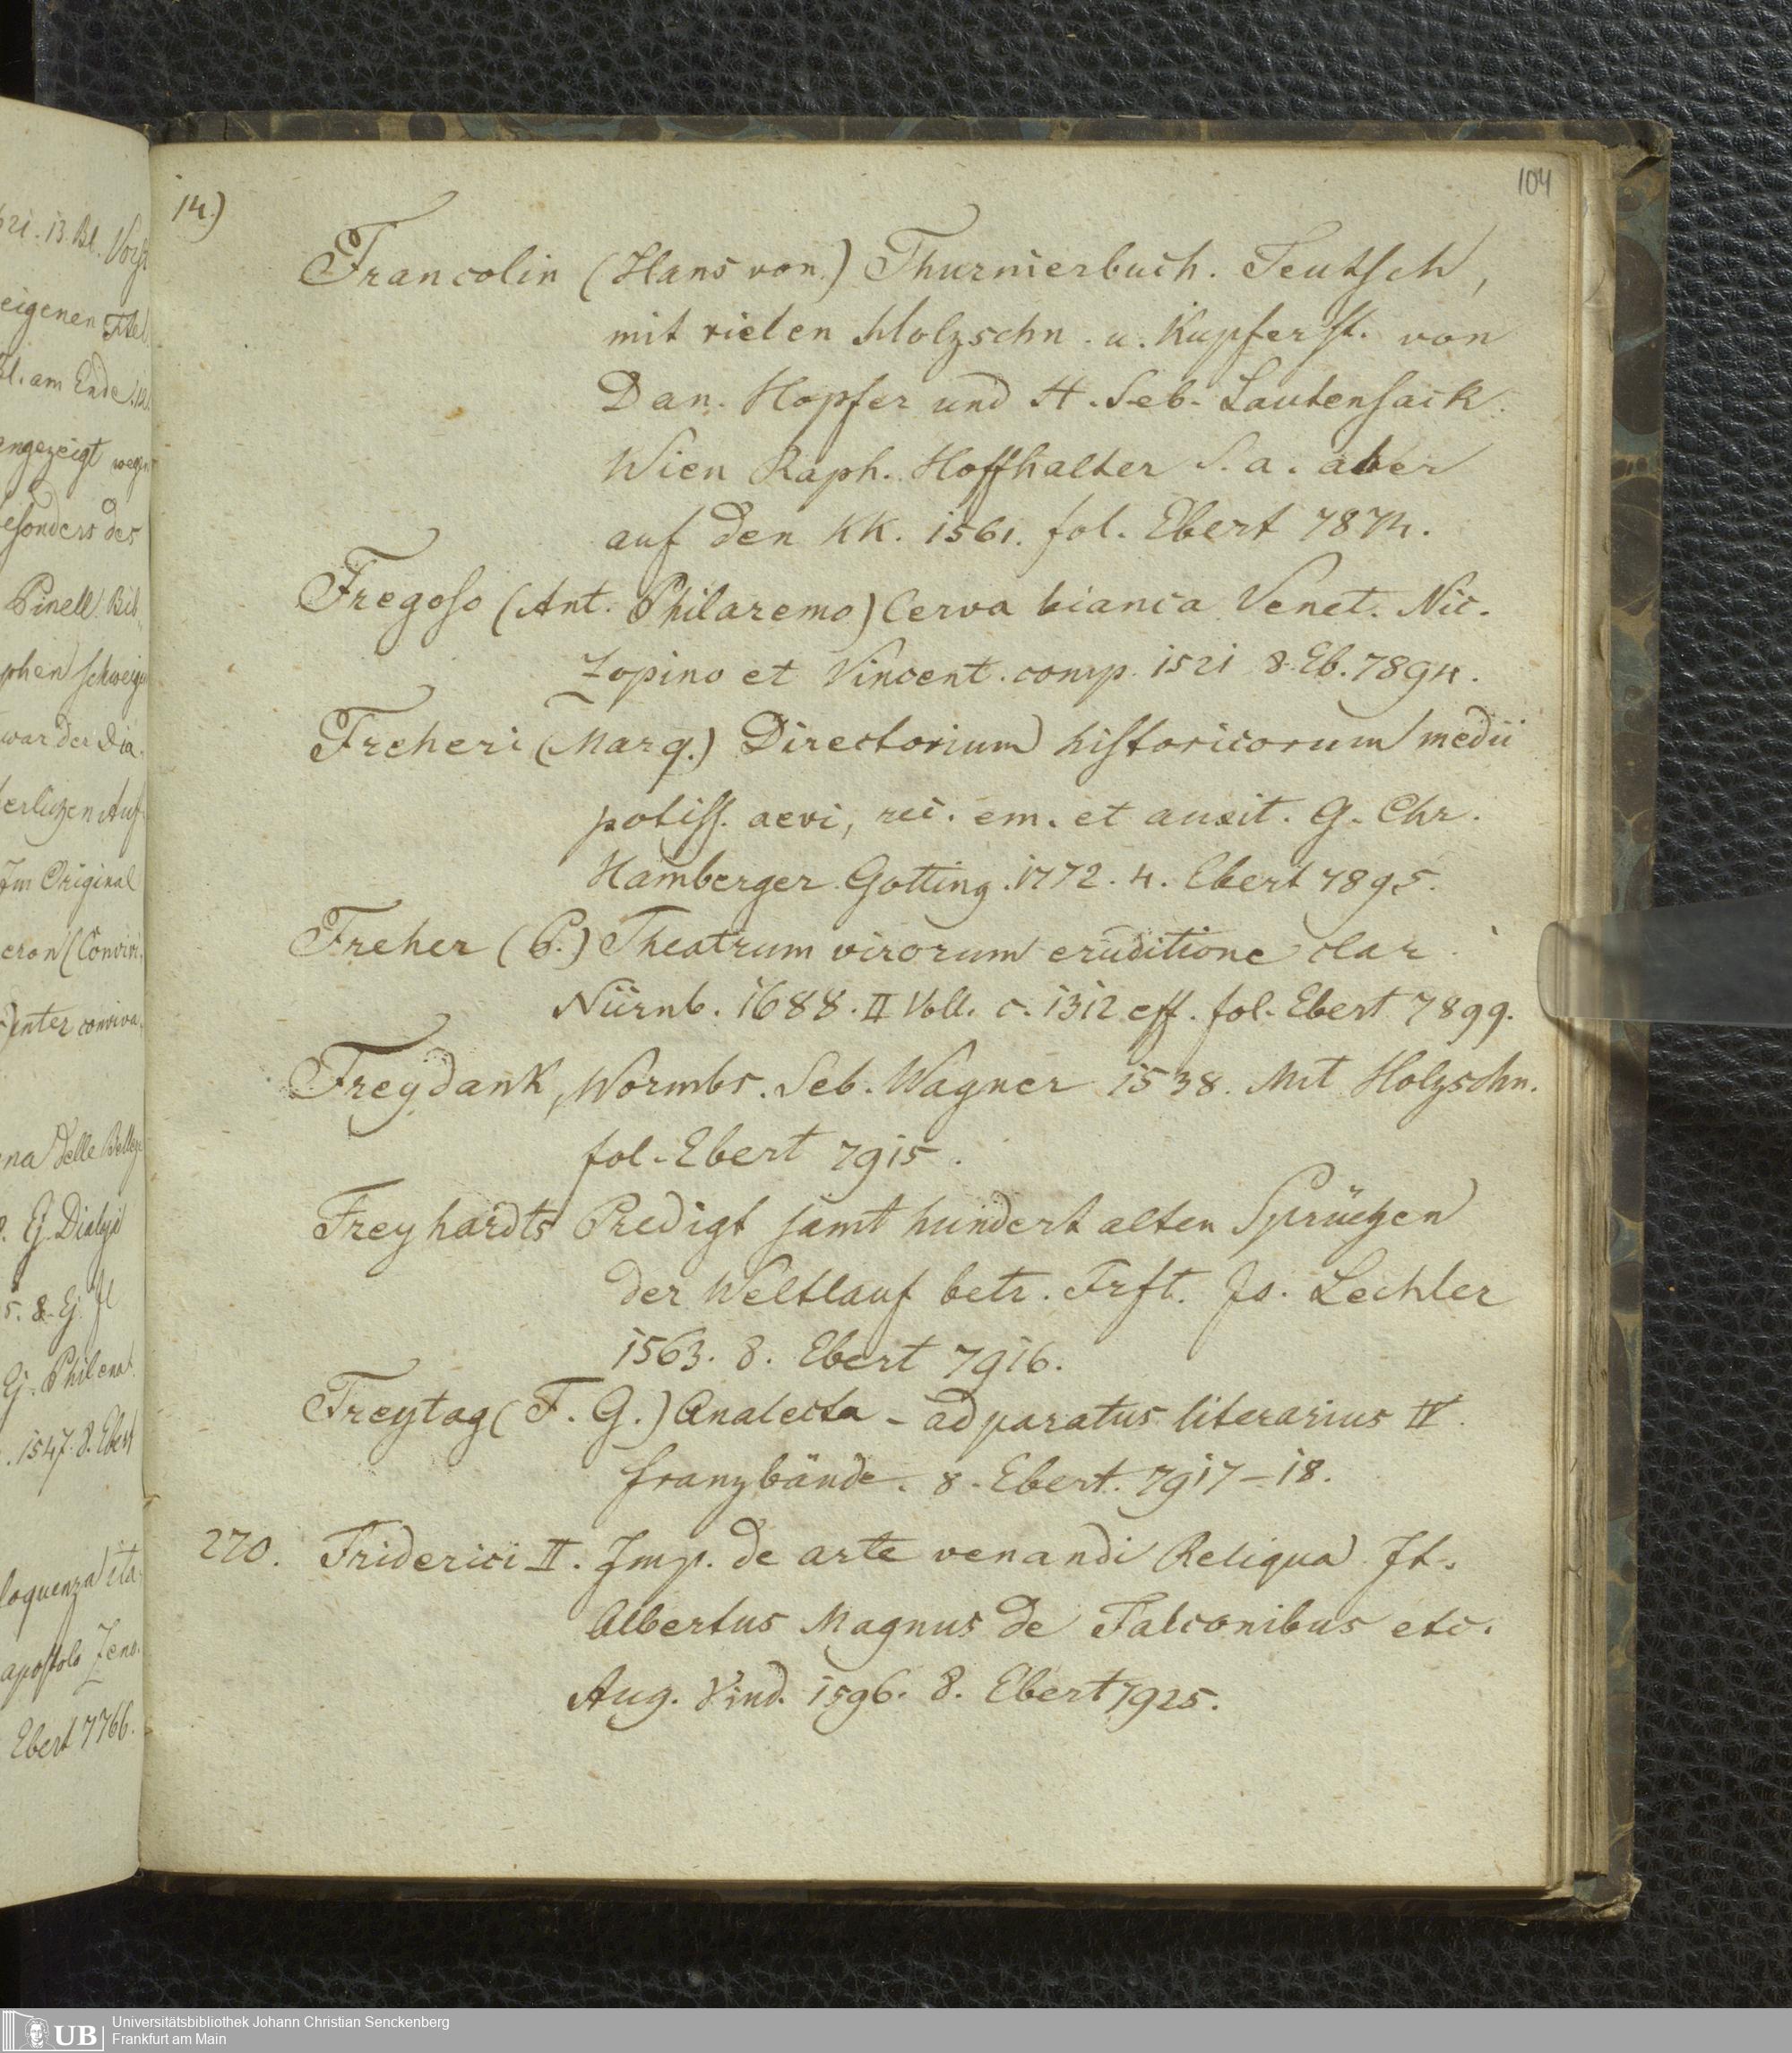 621. 13. Bl. Vorst
eigenen Titel
Bl. am Ende.
angezeigt wegen
besonders des
Pinell. Bib.
phen schweig
war der Dia
erlichen Auf
Im Original
cron (Convivi
inter conviva
na delle Belleze
Ej. Dialogi
5. 8. Ej. Il
Ej. Philena
. 1547. 8. Ebert
loquenza ita
apostolo Zeno
Ebert 7766.
14.)
104
Francolin (Hans von.) Thurnierbuch. Teutsch,
mit vielen Holzschn. u. Kupferst. von
Dan. Hopfer und H. Seb. Lautensack.
Wien Raph. Hoffhalter S. a. aber
auf den KK. 1561. fol. Ebert 7874.
Fregoso (Ant. Philaremo) Cerva bianca Venet. Nic.
Zopino et Vincent. comp. 1521 8. Eb. 7894.
Freheri (Marq.) Directorium historicorum medii
potiss. aevi, rec. em. et auxit. G. Chr.
Hamberger Gotting. 1772. 4. Ebert 7895.
Freher (P.) Theatrum virorum eruditione clar.
Nürnb. 1688. II Voll. c. 1312 eff. fol. Ebert 7899.
Freydank, Wormbs. Seb. Wagner 1538. Mit Holzschn.
fol. Ebert 7915.
Freyhardts Predigt samt hundert alten Sprüchen
der Weltlauf betr. Frft. Jo. Lechler
1563. 8. Ebert 7916.
Freytag (F. G.) Analecta - adparatus literarius IV.
franzbände. 8. Ebert. 7917-18.
270. Friderici II. Imp. de arte venandi Reliqua It.
Albertus Magnus de Falconibus etc.
Aug. Vind. 1596. 8. Ebert 7925.
UB
Universitätsbibliothek Johann Christian Senckenberg
Frankfurt am Main